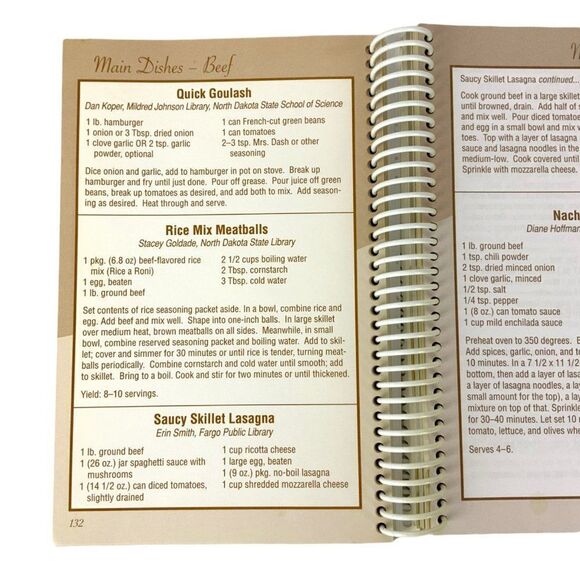 Main Dishes – Beef
Quick Goulash
Dan Koper, Mildred Johnson Library, North Dakota State School of Science
1 lb. hamburger
1 onion or 3 Tbsp. dried onion
1 clove garlic OR 2 tsp. garlic
powder, optional
1 can French-cut green beans
1 can tomatoes
2–3 tsp. Mrs. Dash or other
seasoning
Dice onion and garlic, add to hamburger in pot on stove. Break up
hamburger and fry until just done. Pour off grease. Pour juice off green
beans, break up tomatoes as desired, and add both to mix. Add season-
ing as desired. Heat through and serve.
Rice Mix Meatballs
Stacey Goldade, North Dakota State Library
1 pkg. (6.8 oz) beef-flavored rice
mix (Rice a Roni)
1 egg, beaten
1 lb. ground beef
2 1/2 cups boiling water
2 Tbsp. cornstarch
3 Tbsp. cold water
Set contents of rice seasoning packet aside. In a bowl, combine rice and
egg. Add beef and mix well. Shape into one-inch balls. In large skillet
over medium heat, brown meatballs on all sides. Meanwhile, in small
bowl, combine reserved seasoning packet and boiling water. Add to skil-
let; cover and simmer for 30 minutes or until rice is tender, turning meat-
balls periodically. Combine cornstarch and cold water until smooth; add
to skillet. Bring to a boil. Cook and stir for two minutes or until thickened.
Yield: 8–10 servings.
Saucy Skillet Lasagna
Erin Smith, Fargo Public Library
1 lb. ground beef
1 (26 oz.) jar spaghetti sauce with
mushrooms
1 (14 1/2 oz.) can diced tomatoes,
slightly drained
1 cup ricotta cheese
1 large egg, beaten
1 (9 oz.) pkg. no-boil lasagna
1 cup shredded mozzarella cheese
132
Saucy Skillet Lasagna continued...
Cook ground beef in a large skillet
until browned, drain. Add half of
and mix well. Pour diced tomatoes
and egg in a small bowl and mix
toes. Top with a layer of lasagna
sauce and lasagna noodles in the
medium-low. Cook covered until
Sprinkle with mozzarella cheese.
Nach
Diane Hoffman
1 lb. ground beef
1 tsp. chili powder
2 tsp. dried minced onion
1 clove garlic, minced
1/2 tsp. salt
1/4 tsp. pepper
1 (8 oz.) can tomato sauce
1 cup mild enchilada sauce
Preheat oven to 350 degrees.
Add spices, garlic, onion, and
10 minutes. In a 7 1/2 x 11 1/2
bottom, then add a layer of
a layer of lasagna noodles, a
small amount for the top), a
mixture on top of that. Sprinkle
for 30–40 minutes. Let set 10
tomato, lettuce, and olives
Serves 4–6.